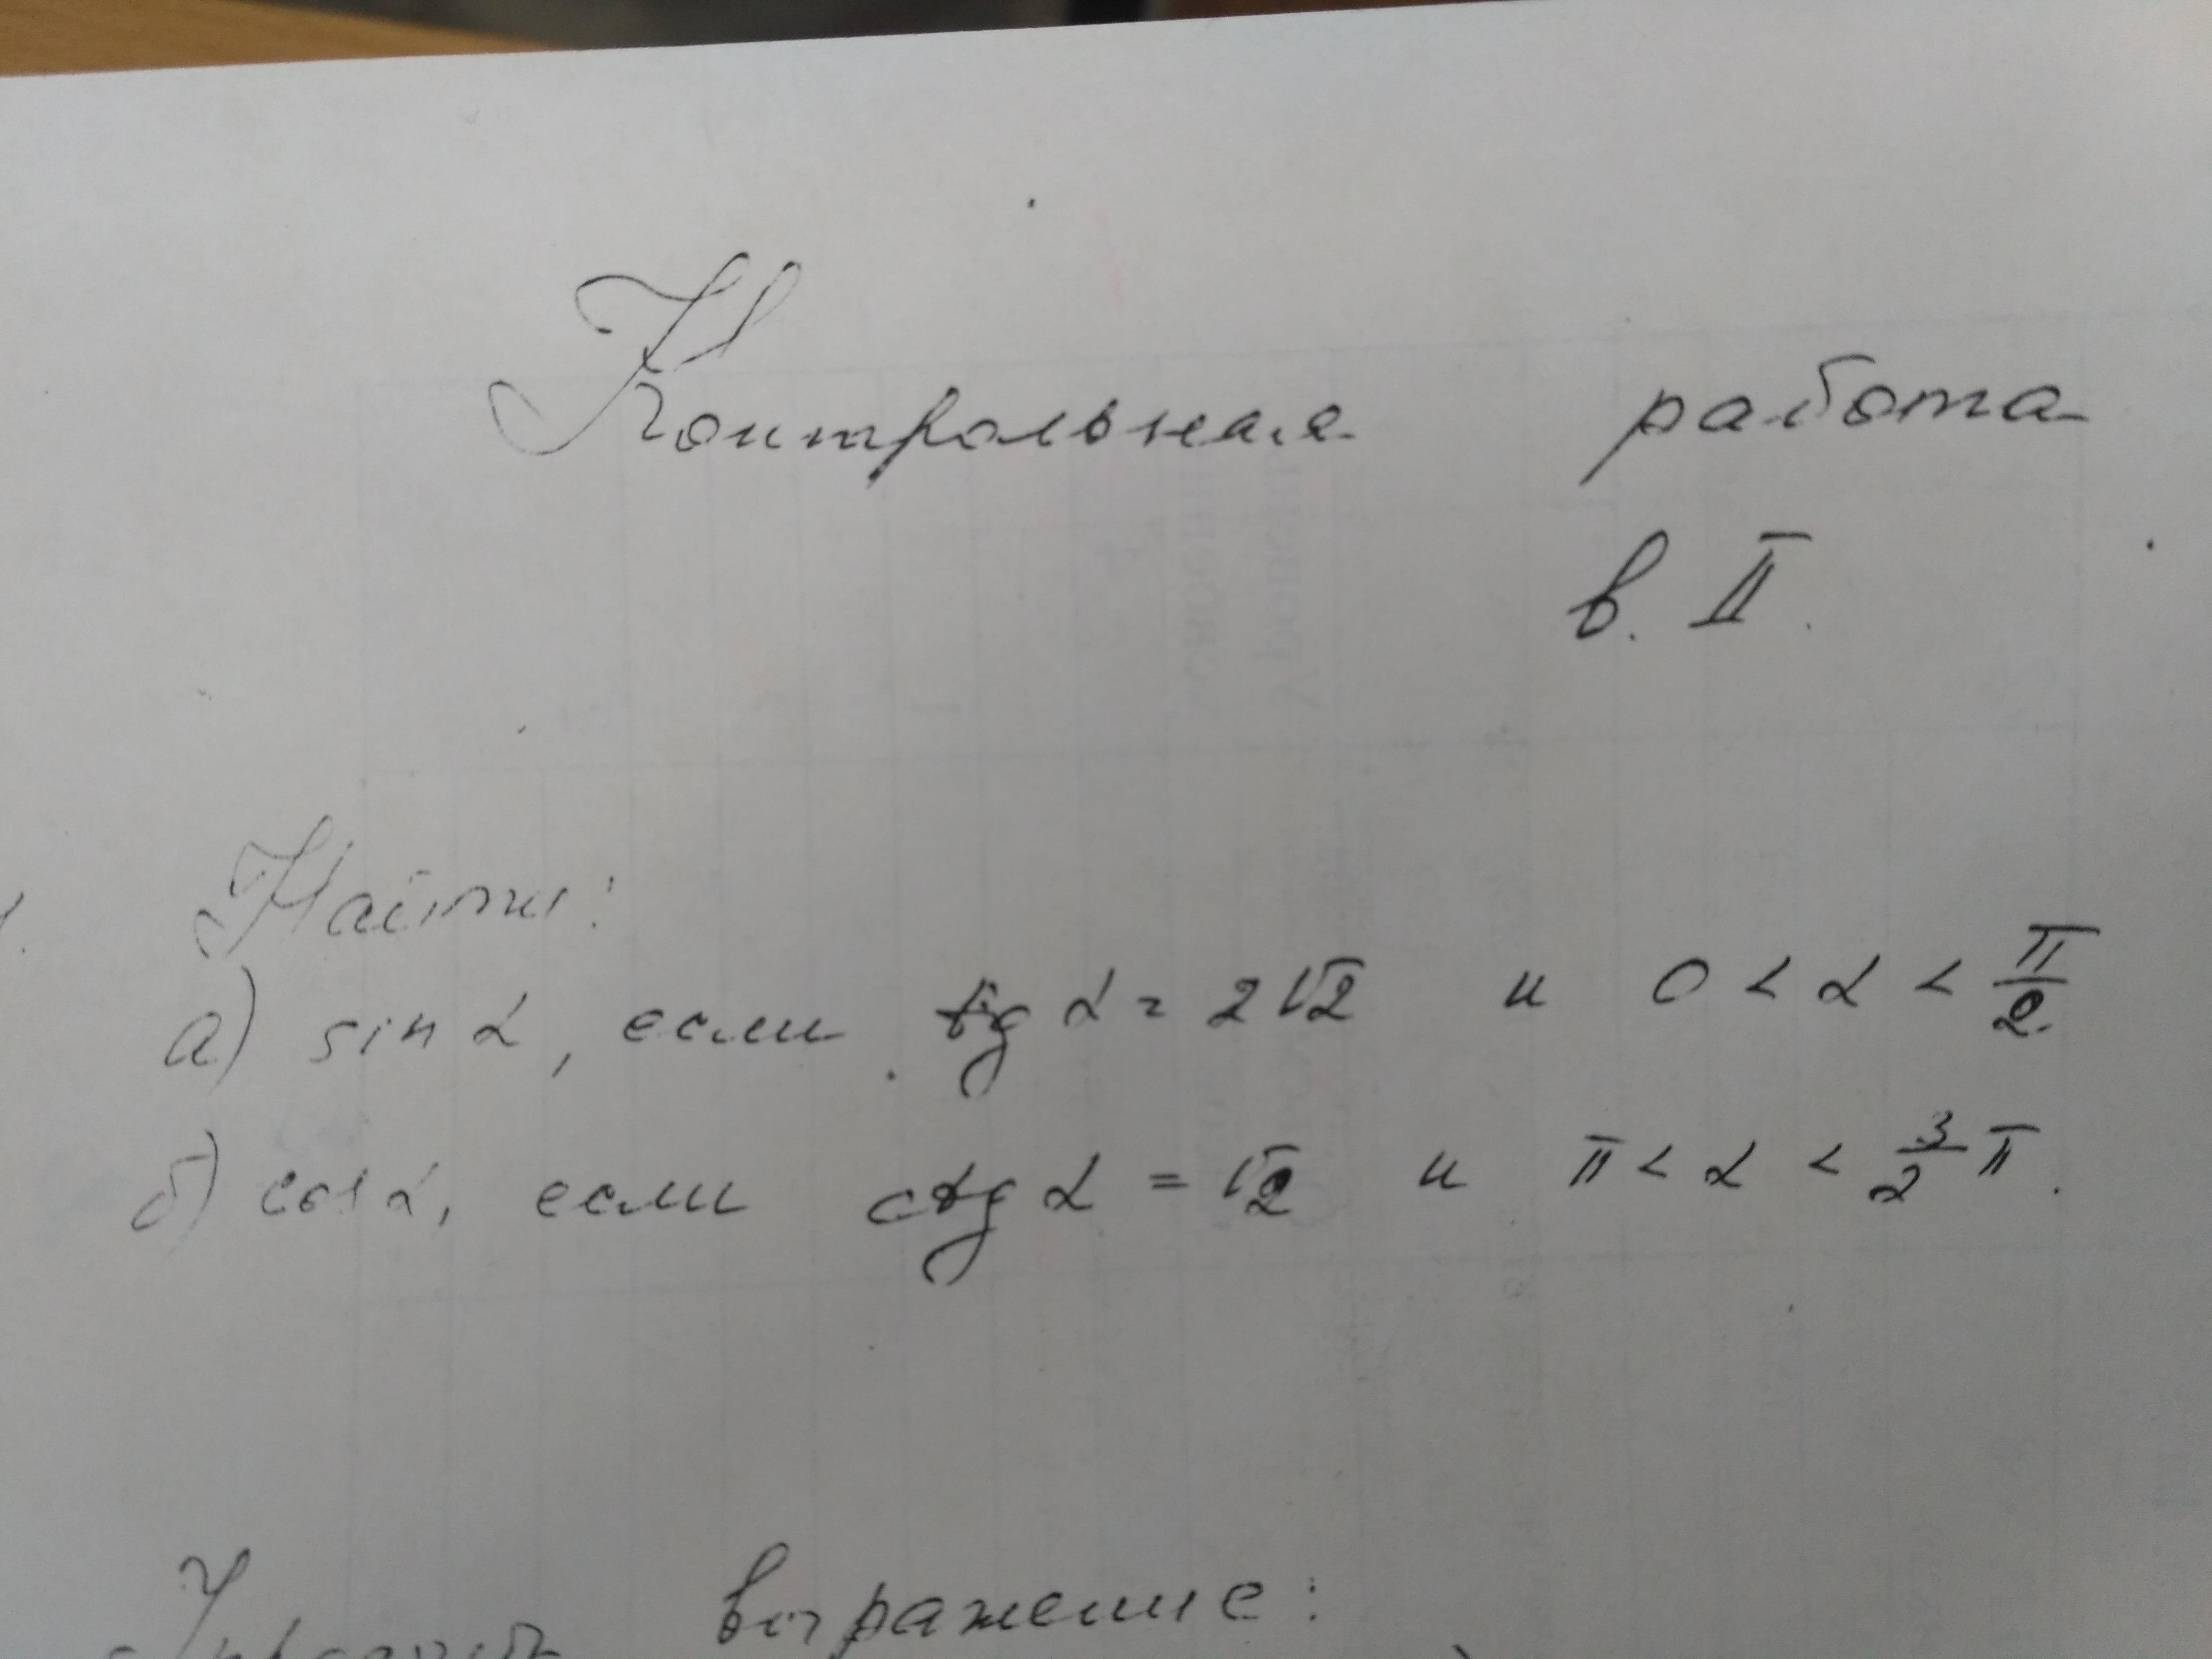 Контрольная работа
в. II.
1. Найти:
а) sin α, если tg α = 2√2 и 0 < α < π/2
б) cos α, если ctg α = √2 и π < α < 3/2 π.
Упростить выражение: